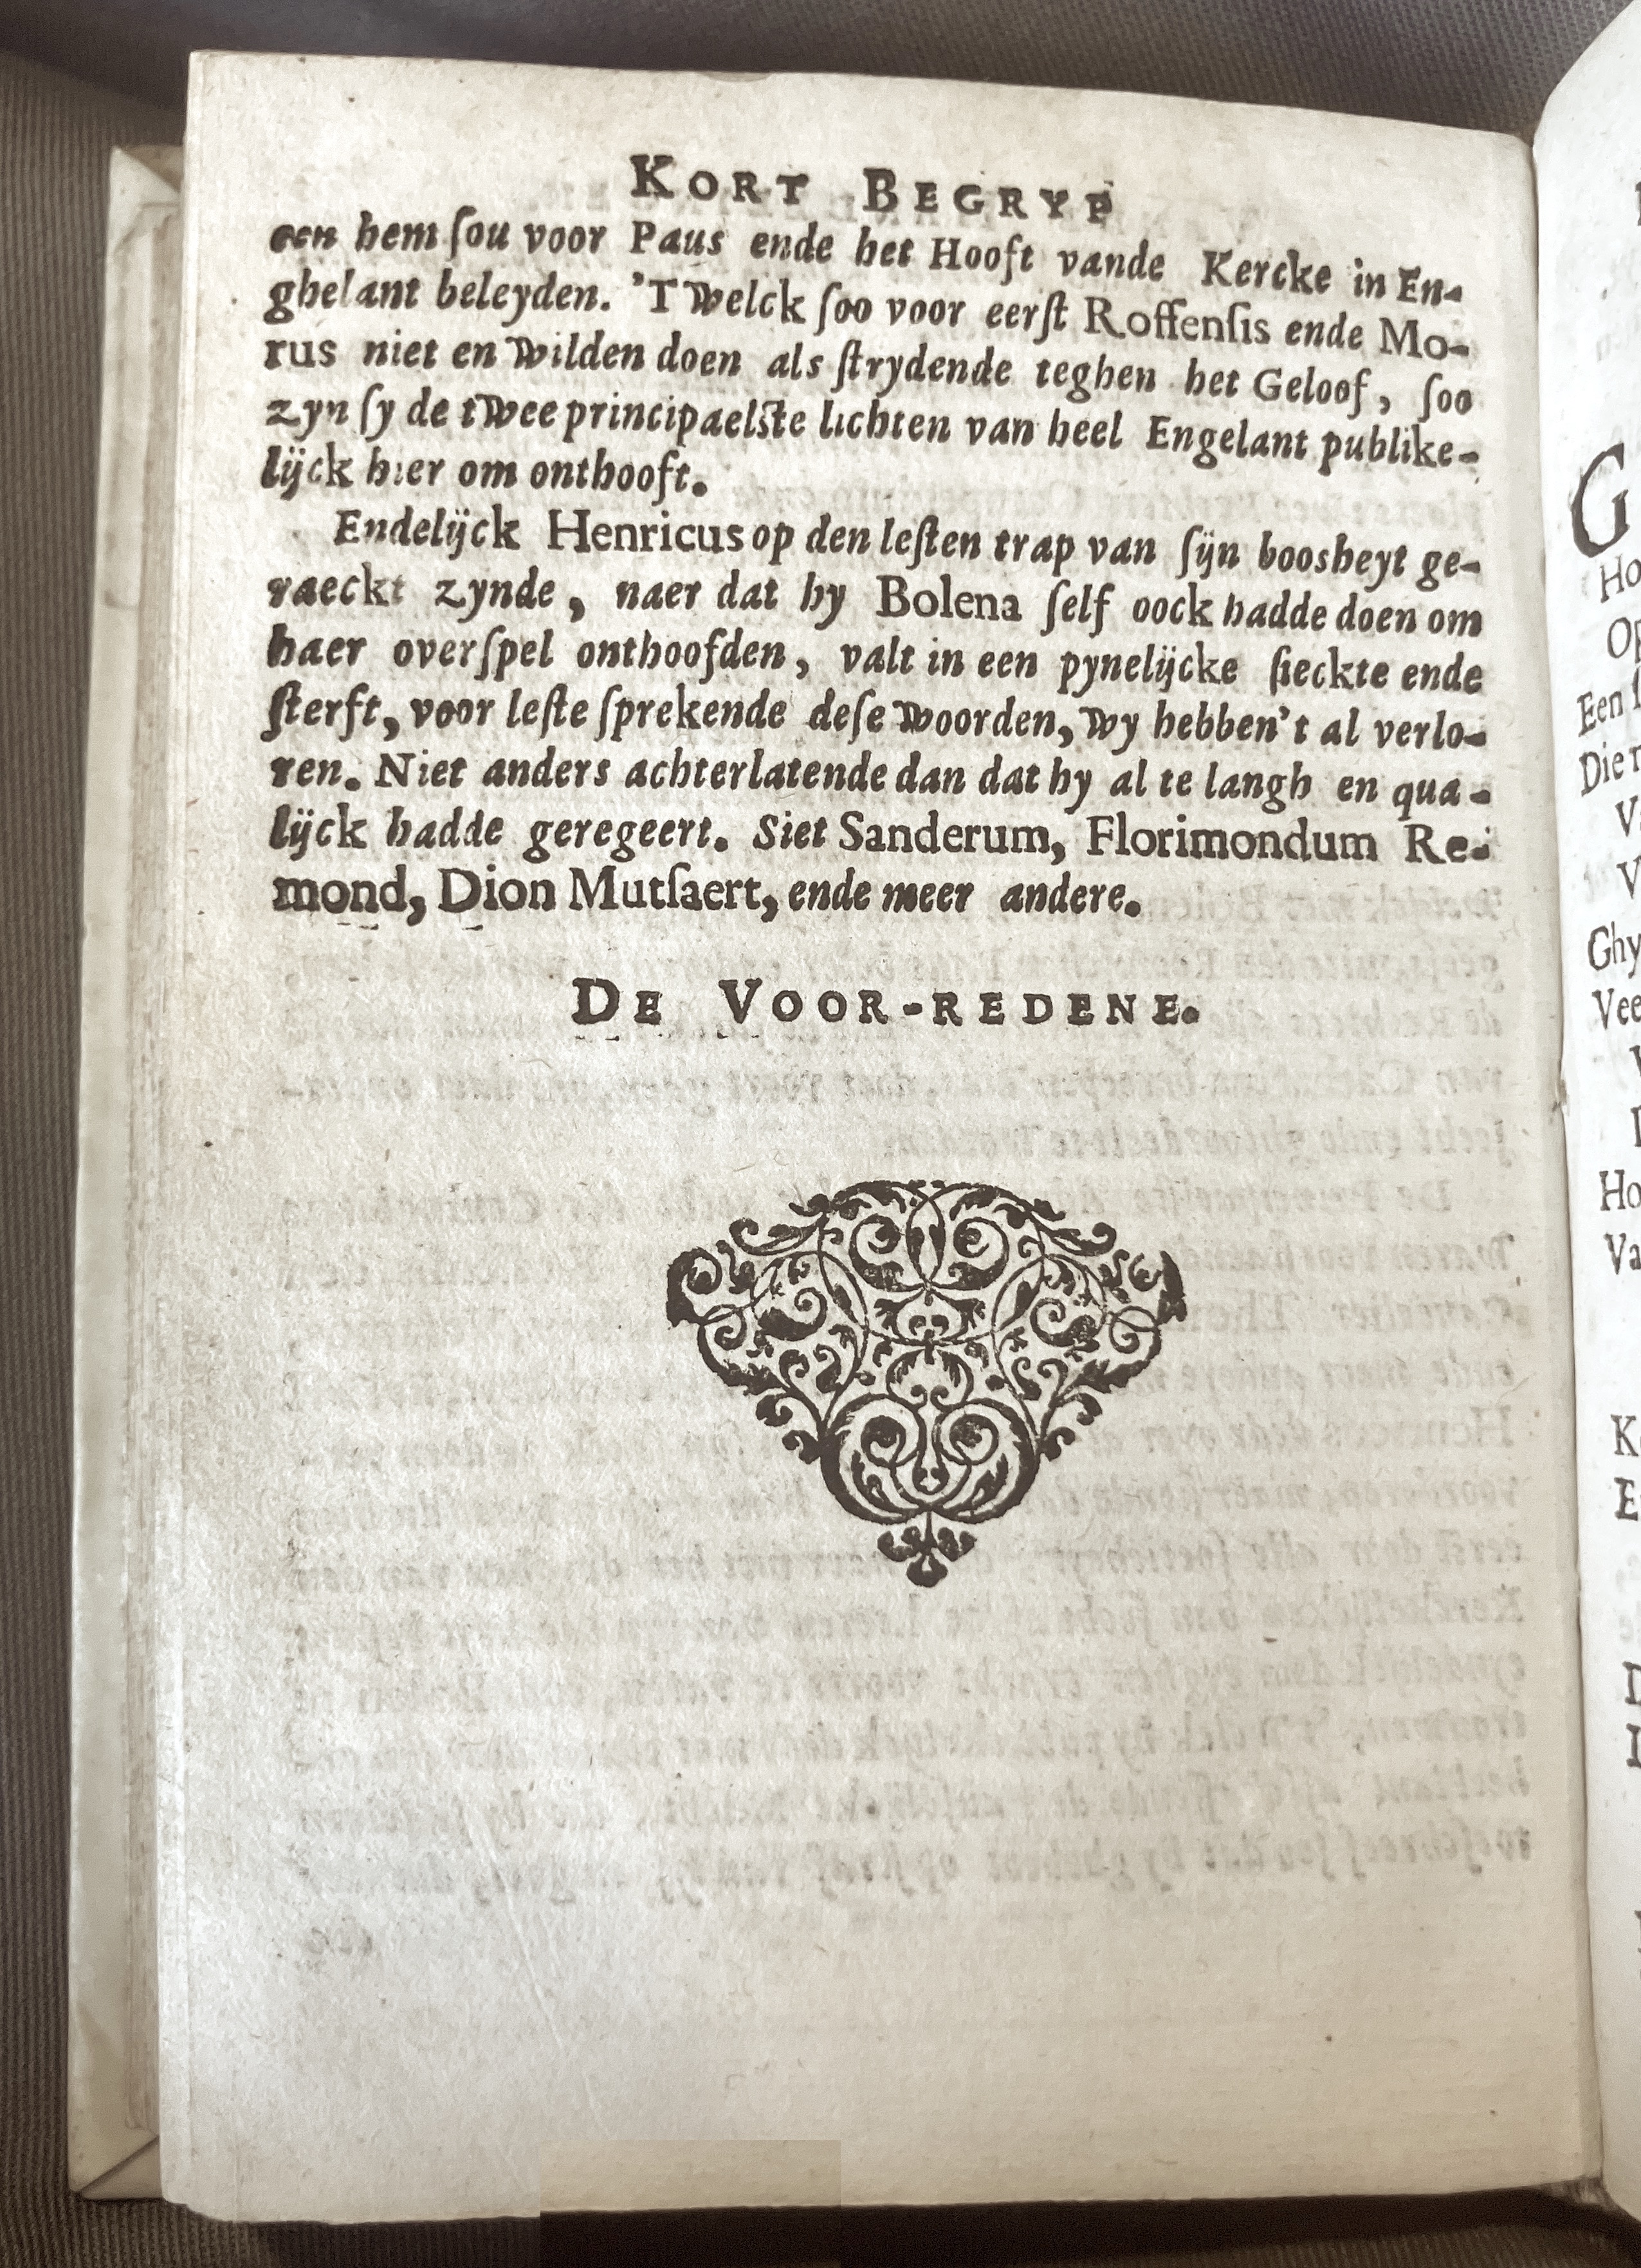 KORT BEGRYP
een hem ſou voor Paus ende het Hooft vande Kercke in En-
ghelant beleyden. 'T Welck ſoo voor eerſt Roffenſis ende Mo-
rus niet en wilden doen als ſtrydende teghen het Geloof, ſoo
zyn ſy de twee principaelſte lichten van heel Engelant publike-
lijck hier om onthooft.
Endelijck Henricus op den leſten trap van ſijn boosheyt ge-
raeckt zynde, naer dat hy Bolena ſelf oock hadde doen om
haer overſpel onthoofden, valt in een pynelijcke ſieckte ende
ſterft, voor leſte ſprekende deſe woorden, wy hebben't al verlo-
ren. Niet anders achterlatende dan dat hy al te langh en qua-
lijck hadde geregeert. Siet Sanderum, Florimondum Re-
mond, Dion Mutſaert, ende meer andere.
DE VOOR-REDENE.
G
Ho
Op
Een
Die
Ghy
Vee
Ho
Va